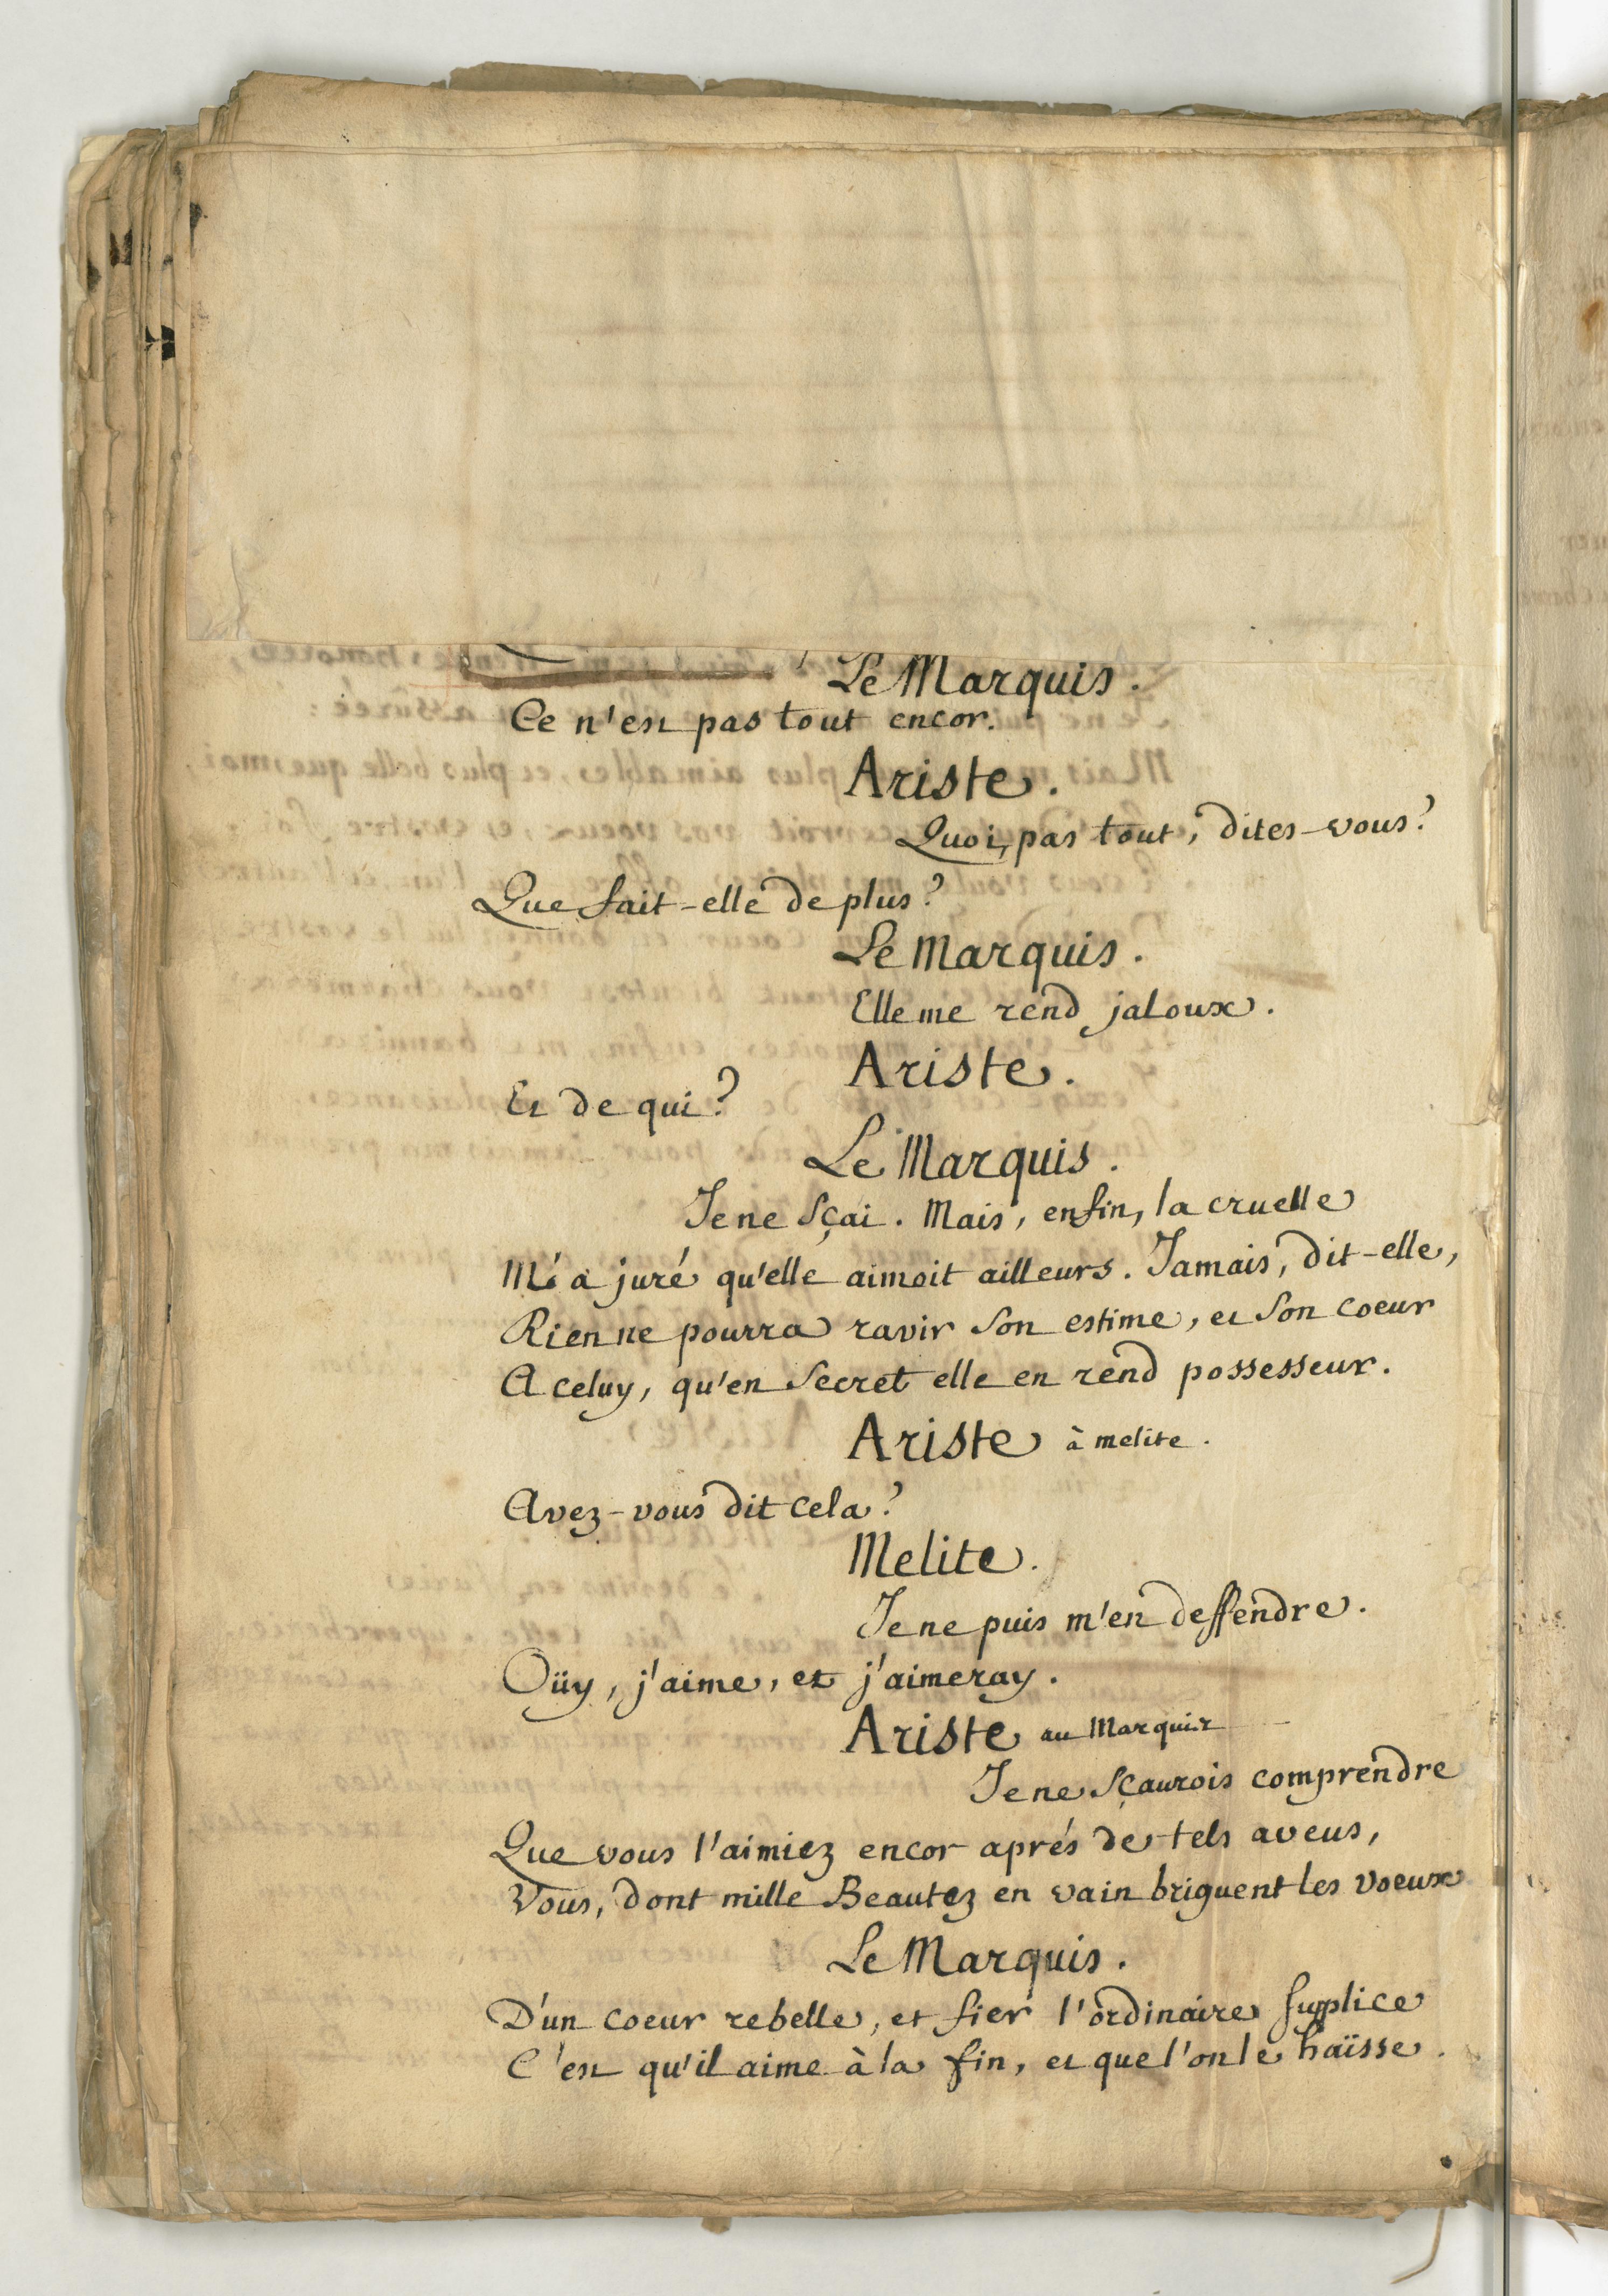 Le Marquis.
Ce n'est pas tout encor.
Ariste.
Quoi, pas tout, dites-vous?
Que fait-elle de plus?
Le Marquis.
Elle me rend jaloux.
Ariste.
Et de qui?
Le Marquis.
Je ne sçai. Mais, enfin, la cruelle
M'a juré qu'elle aimoit ailleurs. Jamais, dit-elle,
Rien ne pourra ravir son estime, et son coeur
A celuy, qu'en secret elle en rend possesseur.
Ariste à melite.
Avez-vous dit cela?
Melite.
Je ne puis m'en deffendre.
Oüy, j'aime, et j'aimeray.
Ariste au Marquis
Je ne sçaurois comprendre
Que vous l'aimiez encor aprés de tels aveus,
Vous, dont mille Beautez en vain briguent les voeux
Le Marquis.
D'un coeur rebelle, et fier l'ordinaire suplice
C'est qu'il aime à la fin, et que l'on le haïsse.